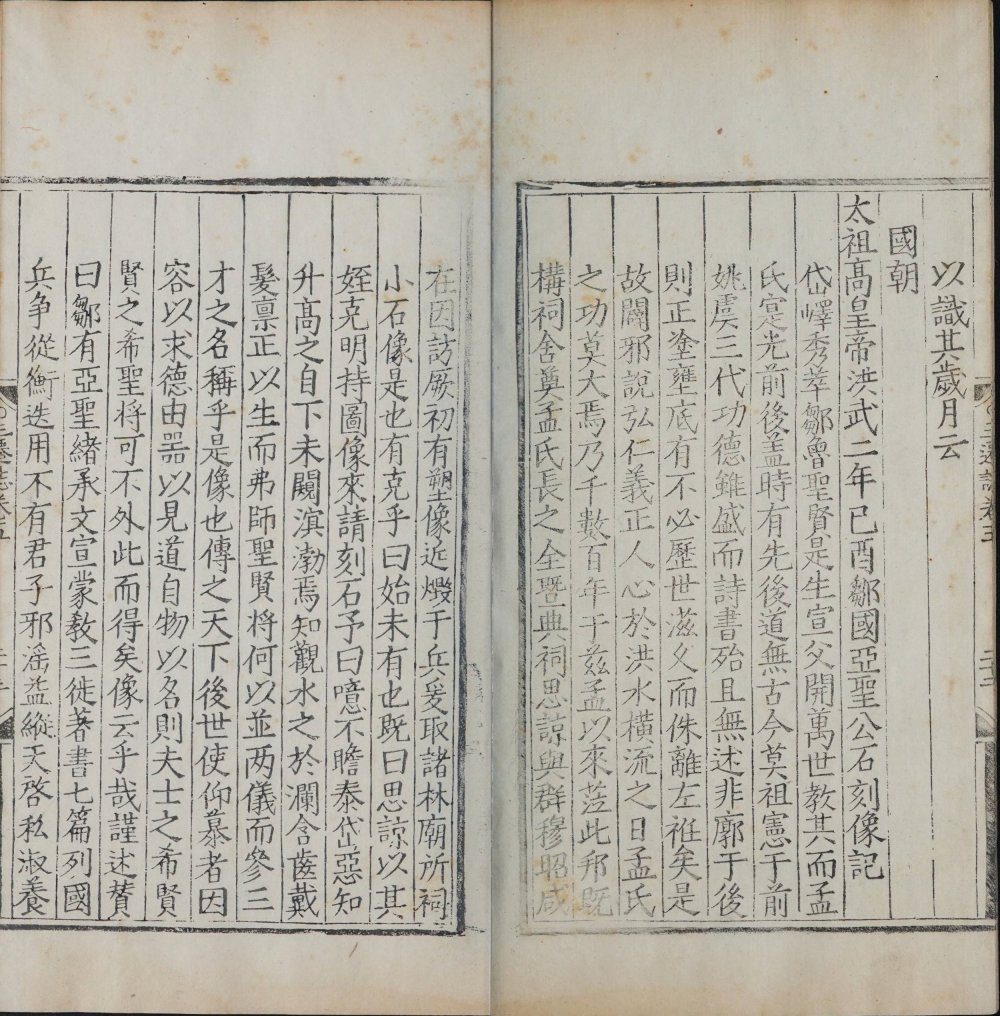 以識其歲月云
國朝
太祖高皇帝洪武二年已酉鄒國亞聖公石刻像記
岱嶧秀萃鄒魯聖賢是生宣父開萬世教其而孟
氏寔光前後盖時有先後道無古今莫祖憲于前
姚虞三代功德雖盛而詩書殆且無述非廓于後
則正塗壅底有不必歷世滋久而侏離左袵矣是
故闢邪說弘仁義正人心於洪水橫流之日孟氏
之功莫大焉乃千數百年于兹孟以來蒞此邦既
構祠舍奠孟氏長之全暨典祠思諒與群穆昭咸
在因訪厥初有塑像近燬于兵爰取諸林廟所祠
小石像是也有克乎曰始未有也既曰思諒以其
姪克明持圖像來請刻石予曰噫不瞻泰岱惡知
升高之自下未闚滇渤焉知觀水之於瀾含齒戴
髮禀正以生而弗師聖賢將何以並两儀而參三
才之名稱乎是像也傳之天下後世使仰慕者因
容以求德由器以見道自物以名則夫士之希賢
賢之希聖将可不外此而得矣像云乎哉謹述賛
曰鄒有亞聖緒承文宣蒙教三徙著書七篇列國
兵争從衡迭用不有君子邪滛益縱天啓私淑養